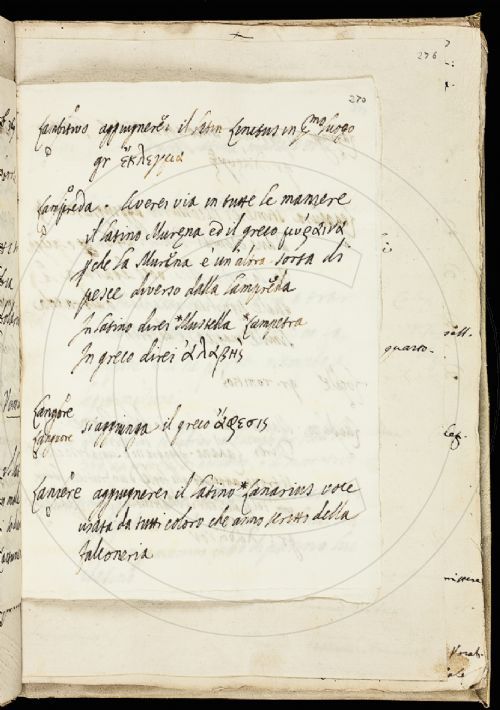 276
270
Lambitivo aggiugnerei il latin Linctus in pmo luogo
gr ἔκλεγμα
Lampreda. Leverei via in tutte le maniere
il latino Murena ed il greco μυραινα
pche la Murena è un'altra sorta di
pesce diverso dalla lampreda
In latino direi *Mustella *Lampetra
In greco direi ἀλαβης
Languore
Languore
si aggiunga il greco ἄφεσις
Laniere aggiugnerei il latino *Lanarius voce
usata da tutti coloro che anno scritto della
falconeria
quarto.